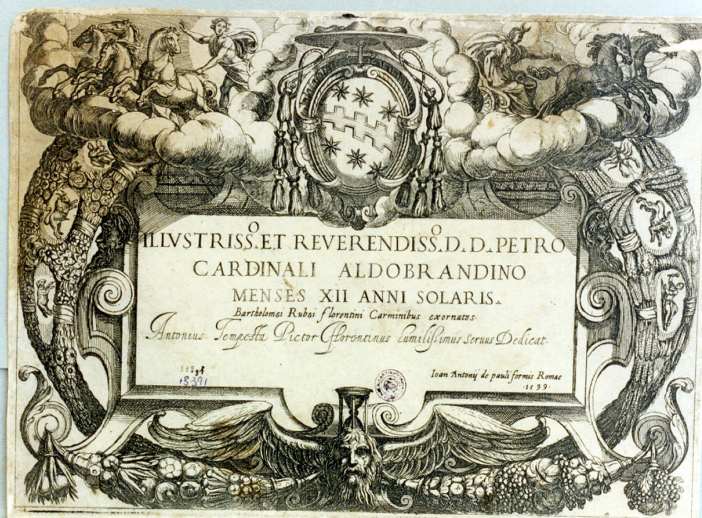 ILLVSTRISS.º ET REVERENDISS.º D. D. PETRO
CARDINALI ALDOBRANDINO
MENSES XII ANNI SOLARIS.
Bartholomei Rubei florentini Carminibus exornatos.
Antonius Tempesta Pictor Florentinus humilissimus seruus Dedicat.
Ioan Antonij de pauli formis Romae
.1599.
18391